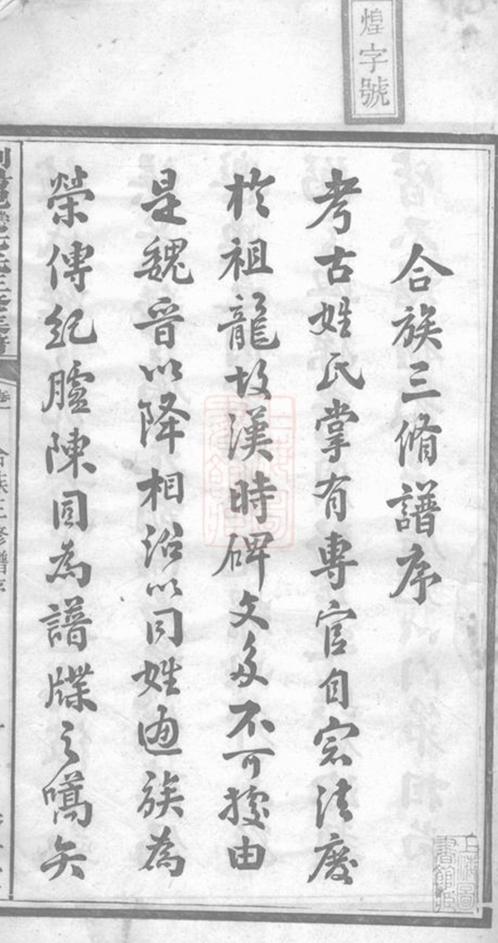 煌字號
合族三脩譜序
考古姓氏掌有專官自宗法廢
於祖龍故漢時碑文多不可據由
是魏晉以降相沿以同姓通族為
榮傳紀臚陳因為譜牒之嚆矢
卷一
合族三修譜序